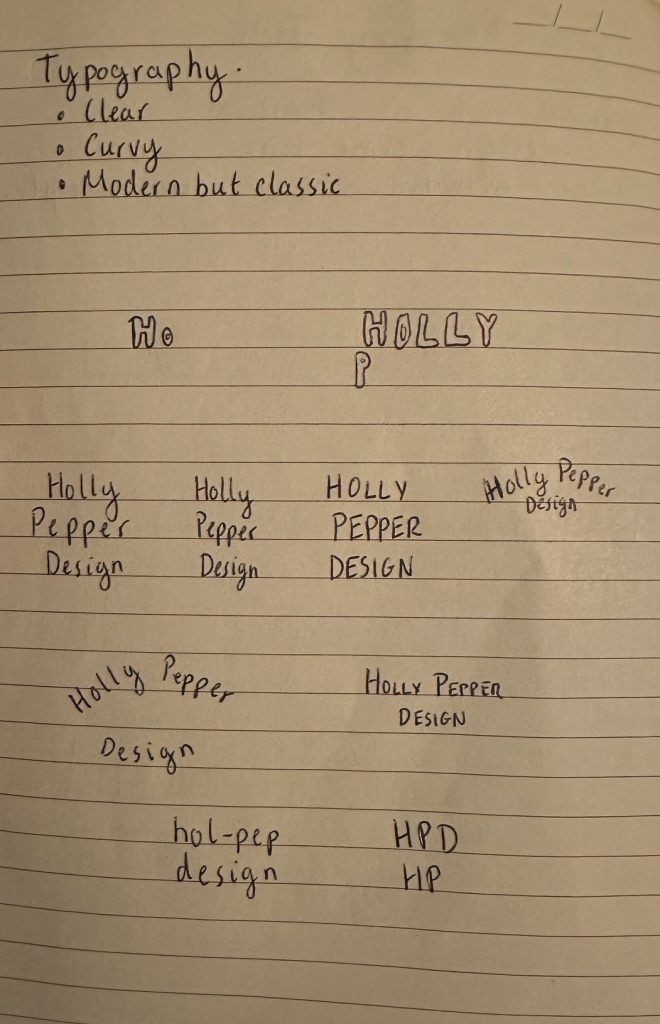 Typography.
• Clear
• Curvy
• Modern but classic
Ho
HOLLY
P
Holly
Pepper
Design
Holly
Pepper
Design
HOLLY
PEPPER
DESIGN
Holly Pepper
Design
Holly Pepper
Design
HOLLY PEPPER
DESIGN
hol-pep
design
HPD
HP